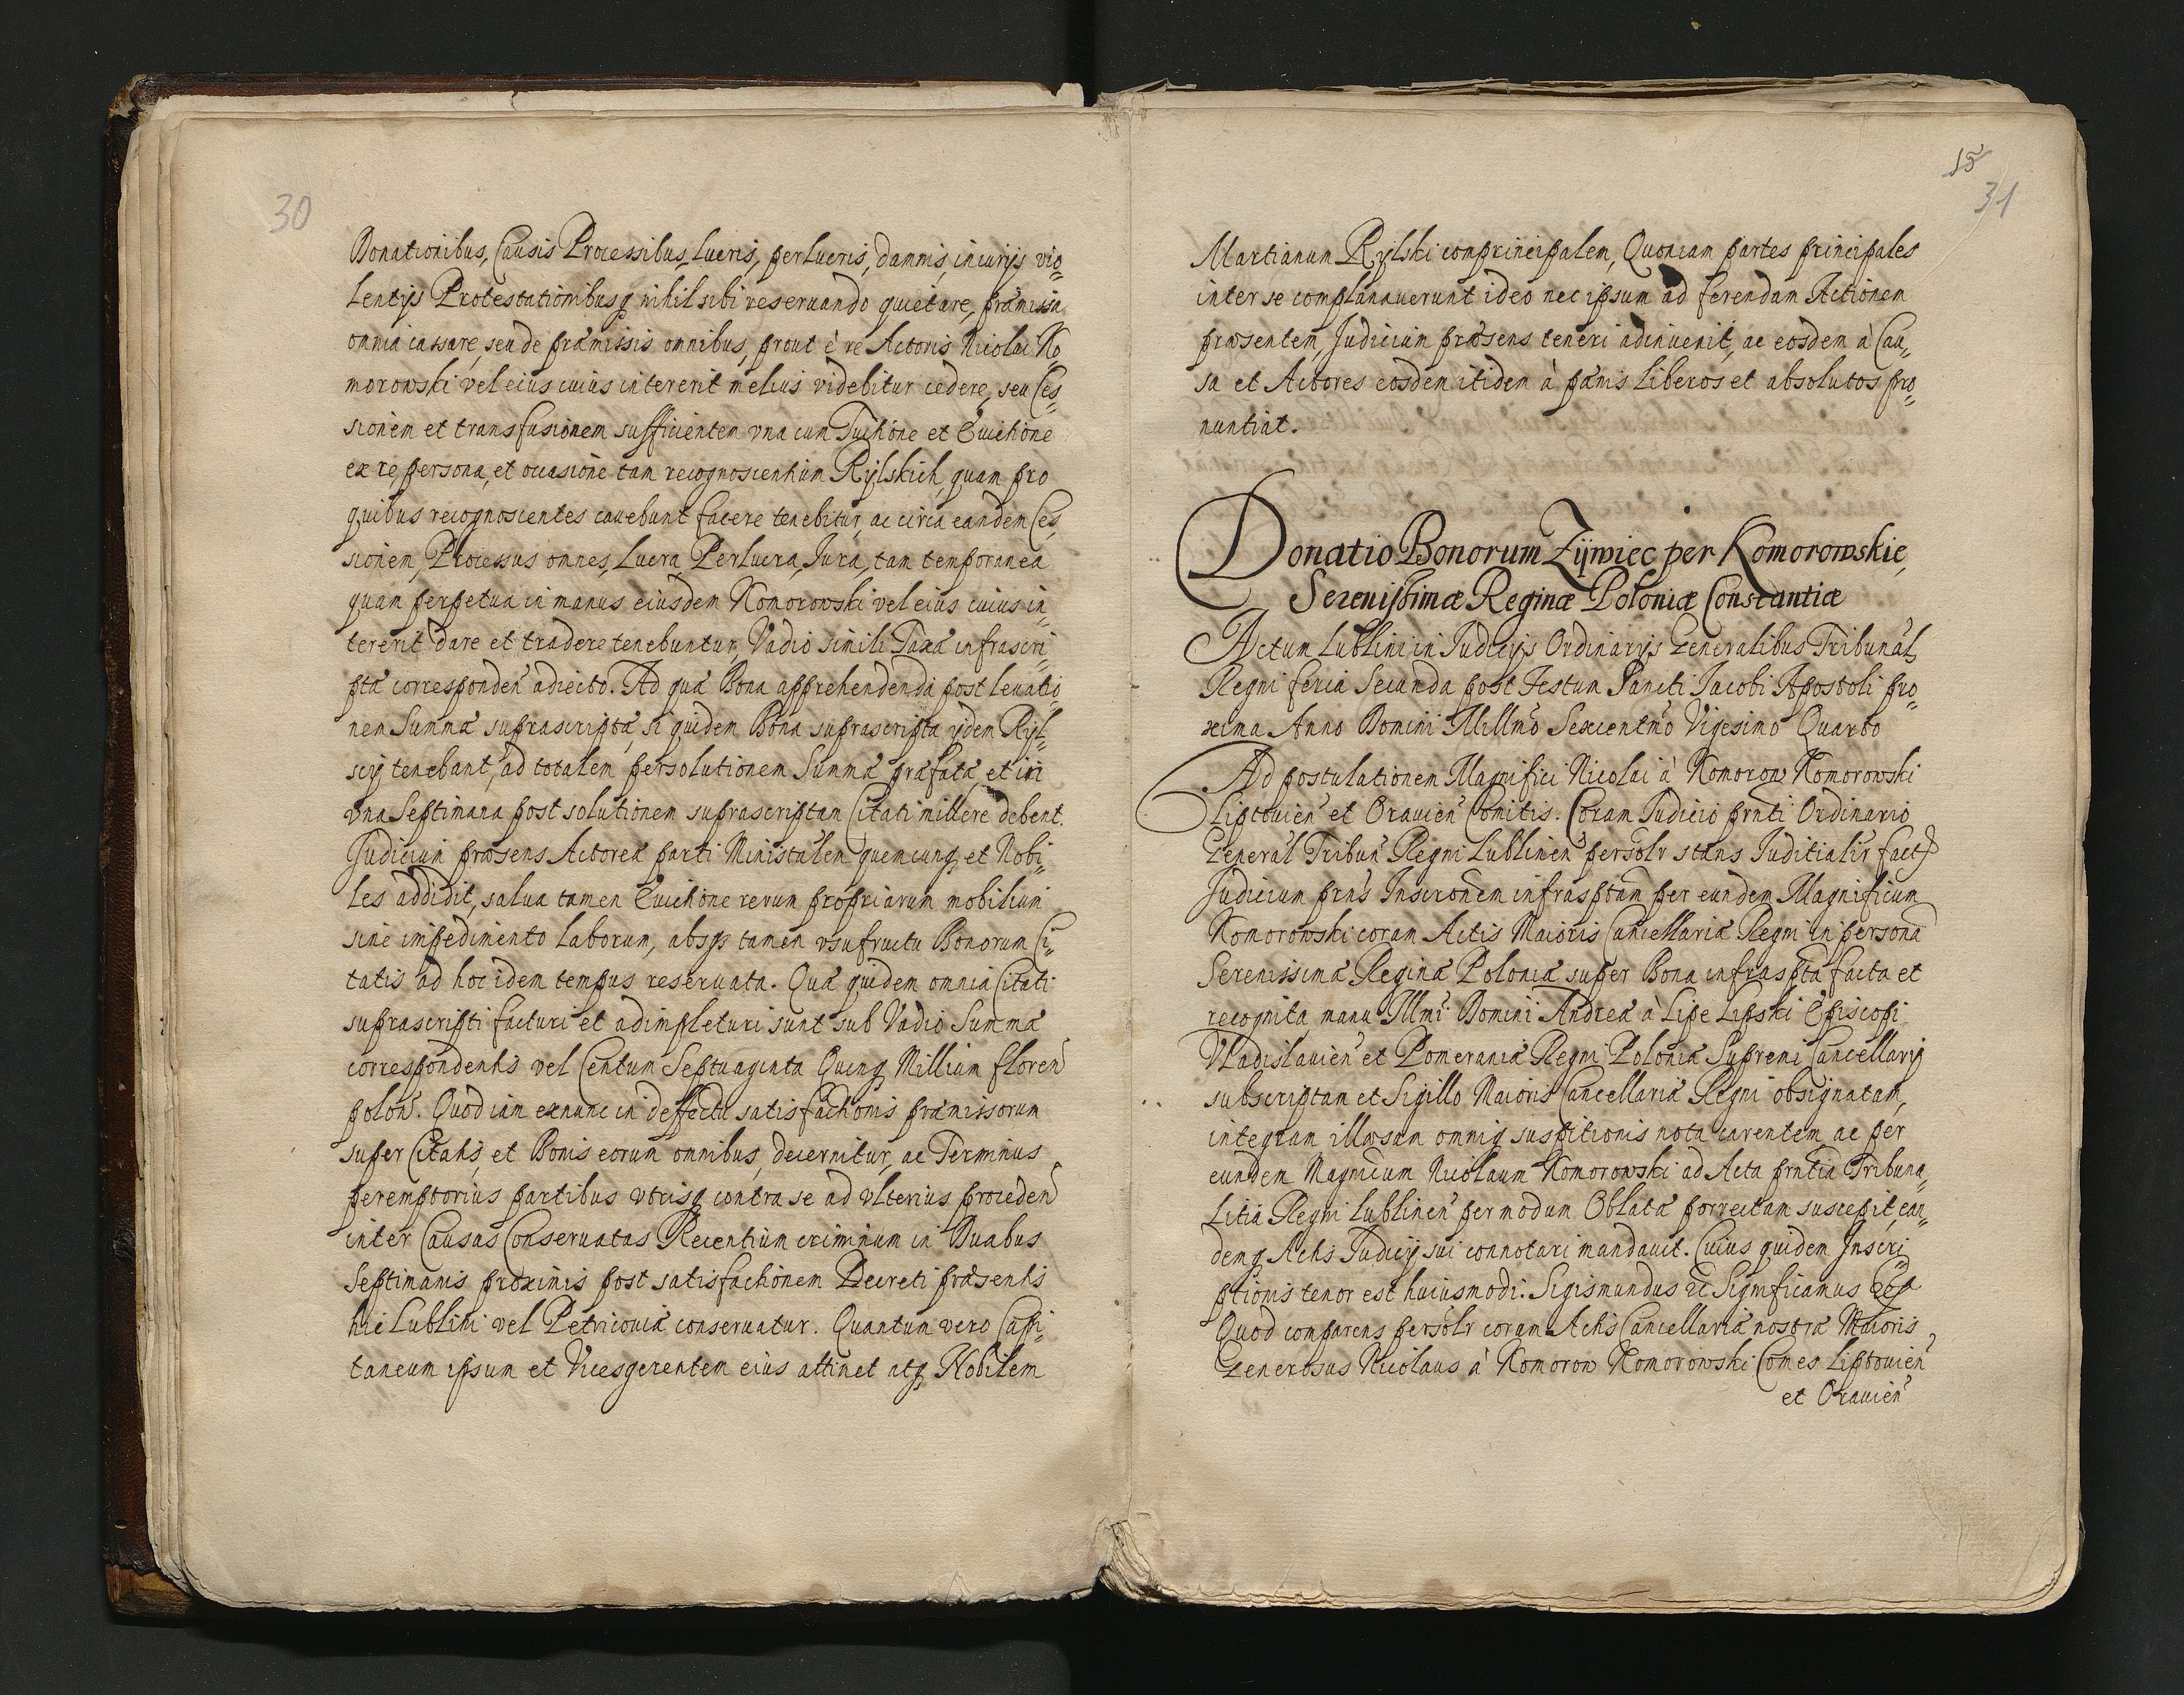 30
Donationibus, Causis Processibus, Lucris, perlucris, damnis, iniurijs vio=
lentijs Protestationibusq nihil sibi reseruando quietare, præmissa
omnia cassare, seu de præmissis omnibus, prout è re Actoris Nicolai Ko
morowski vel eius cuius intererit melius videbitur cedere, seu Ces=
sionem et transfusionem sufficientem vna cum Tuitione et Euictione
ex re, persona, et occasione tam recognoscentium Rylskich, quam pro
quibus recognoscentes cauebunt facere tenebitur, ac circa eandem Ces,
sionem, Processus omnes, Lucra, Perlucra, Jura, tam temporanea
quam perpetua in manus eiusdem Komorowski vel eius cuius in=
tererit dare et tradere tenebuntur, Vadio simili Taxa infrascri=
pta corresponden adiecto. Ad quæ Bona apprehendenda post leuatio=
nem Summæ suprascriptæ, si quidem Bona suprascripta ijdem Ryl=
scij tenebant, ad totalem persolutionem Summæ præfatæ et in
vna Septimana post solutionem suprascriptam Citati mittere debent.
Judicium præsens Actoreæ parti Ministralem quemcunq et Nobi=
les addidit, salua tamen Euictione rerum propriarum mobilium
sine impedimento laborum, absq tamen vsufructu Bonorum Ci=
tatis ad hoc idem tempus reseruata. Quæ quidem omnia Citati
suprascripti facturi et adimpleturi sunt sub Vadio Summæ
correspondentis vel Centum Septuaginta Quinq Millium floren
polon. Quod iam exnunc in deffectu satisfactionis præmissorum
super Citatis, et Bonis eorum omnibus, decernitur, ac Terminus
peremptorius partibus vtrisq contra se ad vlterius proceden
inter Causas Conseruatas Recentium criminum in Duabus
Septimanis proximis post satisfactionem Decreti præsentis
hic Lublini vel Petricouiæ conseruatur. Quantum vero Capi=
taneum ipsum et Vicesgerentem eius attinet atq Nobilem
15
31
Martianum Rylski comprincipalem, Quoniam partes principales
inter se complanauerunt ideo nec ipsum ad ferendam Actionem
præsentem, Judicium præsens teneri adinuenit, ac eosdem à Cau=
sa et Actores eosdem itidem à pænis liberos et absolutos pro=
nuntiat.
Donatio Bonorum Zÿwiec per Komorowskie,
Serenissimæ Reginæ Poloniæ Constantiæ
Actum Lublini in Judicijs Ordinarijs Generalibus Tribunal
Regni feria Secunda post Festum Sancti Jacobi Apostoli pro=
xima Anno Domini Millmo Sexcentmo Vigesimo Quarto
Ad postulationem Magnifici Nicolai à Komorow Komorowski
Liptouien et Orauien Comitis. Coram Judicio prnti Ordinario
General Tribun Regni Lublinen persolr stans Juditialir fact
Judicium prns Inscronem infrasptam per eundem Magnificum
Komorowski coram Actis Maioris Cancellariæ Regni in persona
Serenissimæ Reginæ Poloniæ super Bona infraspta facta et
recognita, manu Illmi Domini Andreæ à Lipe Lipski Episcopi
Vladislauien et Pomeraniæ Regni Poloniæ Supremi Cancellarij
subscriptam et Sigillo Maioris Cancellariæ Regni obsignatam,
integram illæsam omniq suspitionis nota carentem, ac per
eundem Magnicum Nicolaum Komorowski ad Acta prntia Tribuna=
litia Regni Lublinen per modum Oblatæ porrectam suscepit, ean=
demq Actis Judicij sui connotari mandauit. Cuius quidem Inscri=
ptionis tenor est huiusmodi. Sigismundus &c Significamus
Quod comparens persolr coram Actis Cancellariæ nostræ Maioris
Generosus Nicolaus à Komorow Komorowski Comes Liptouien
et Orauien